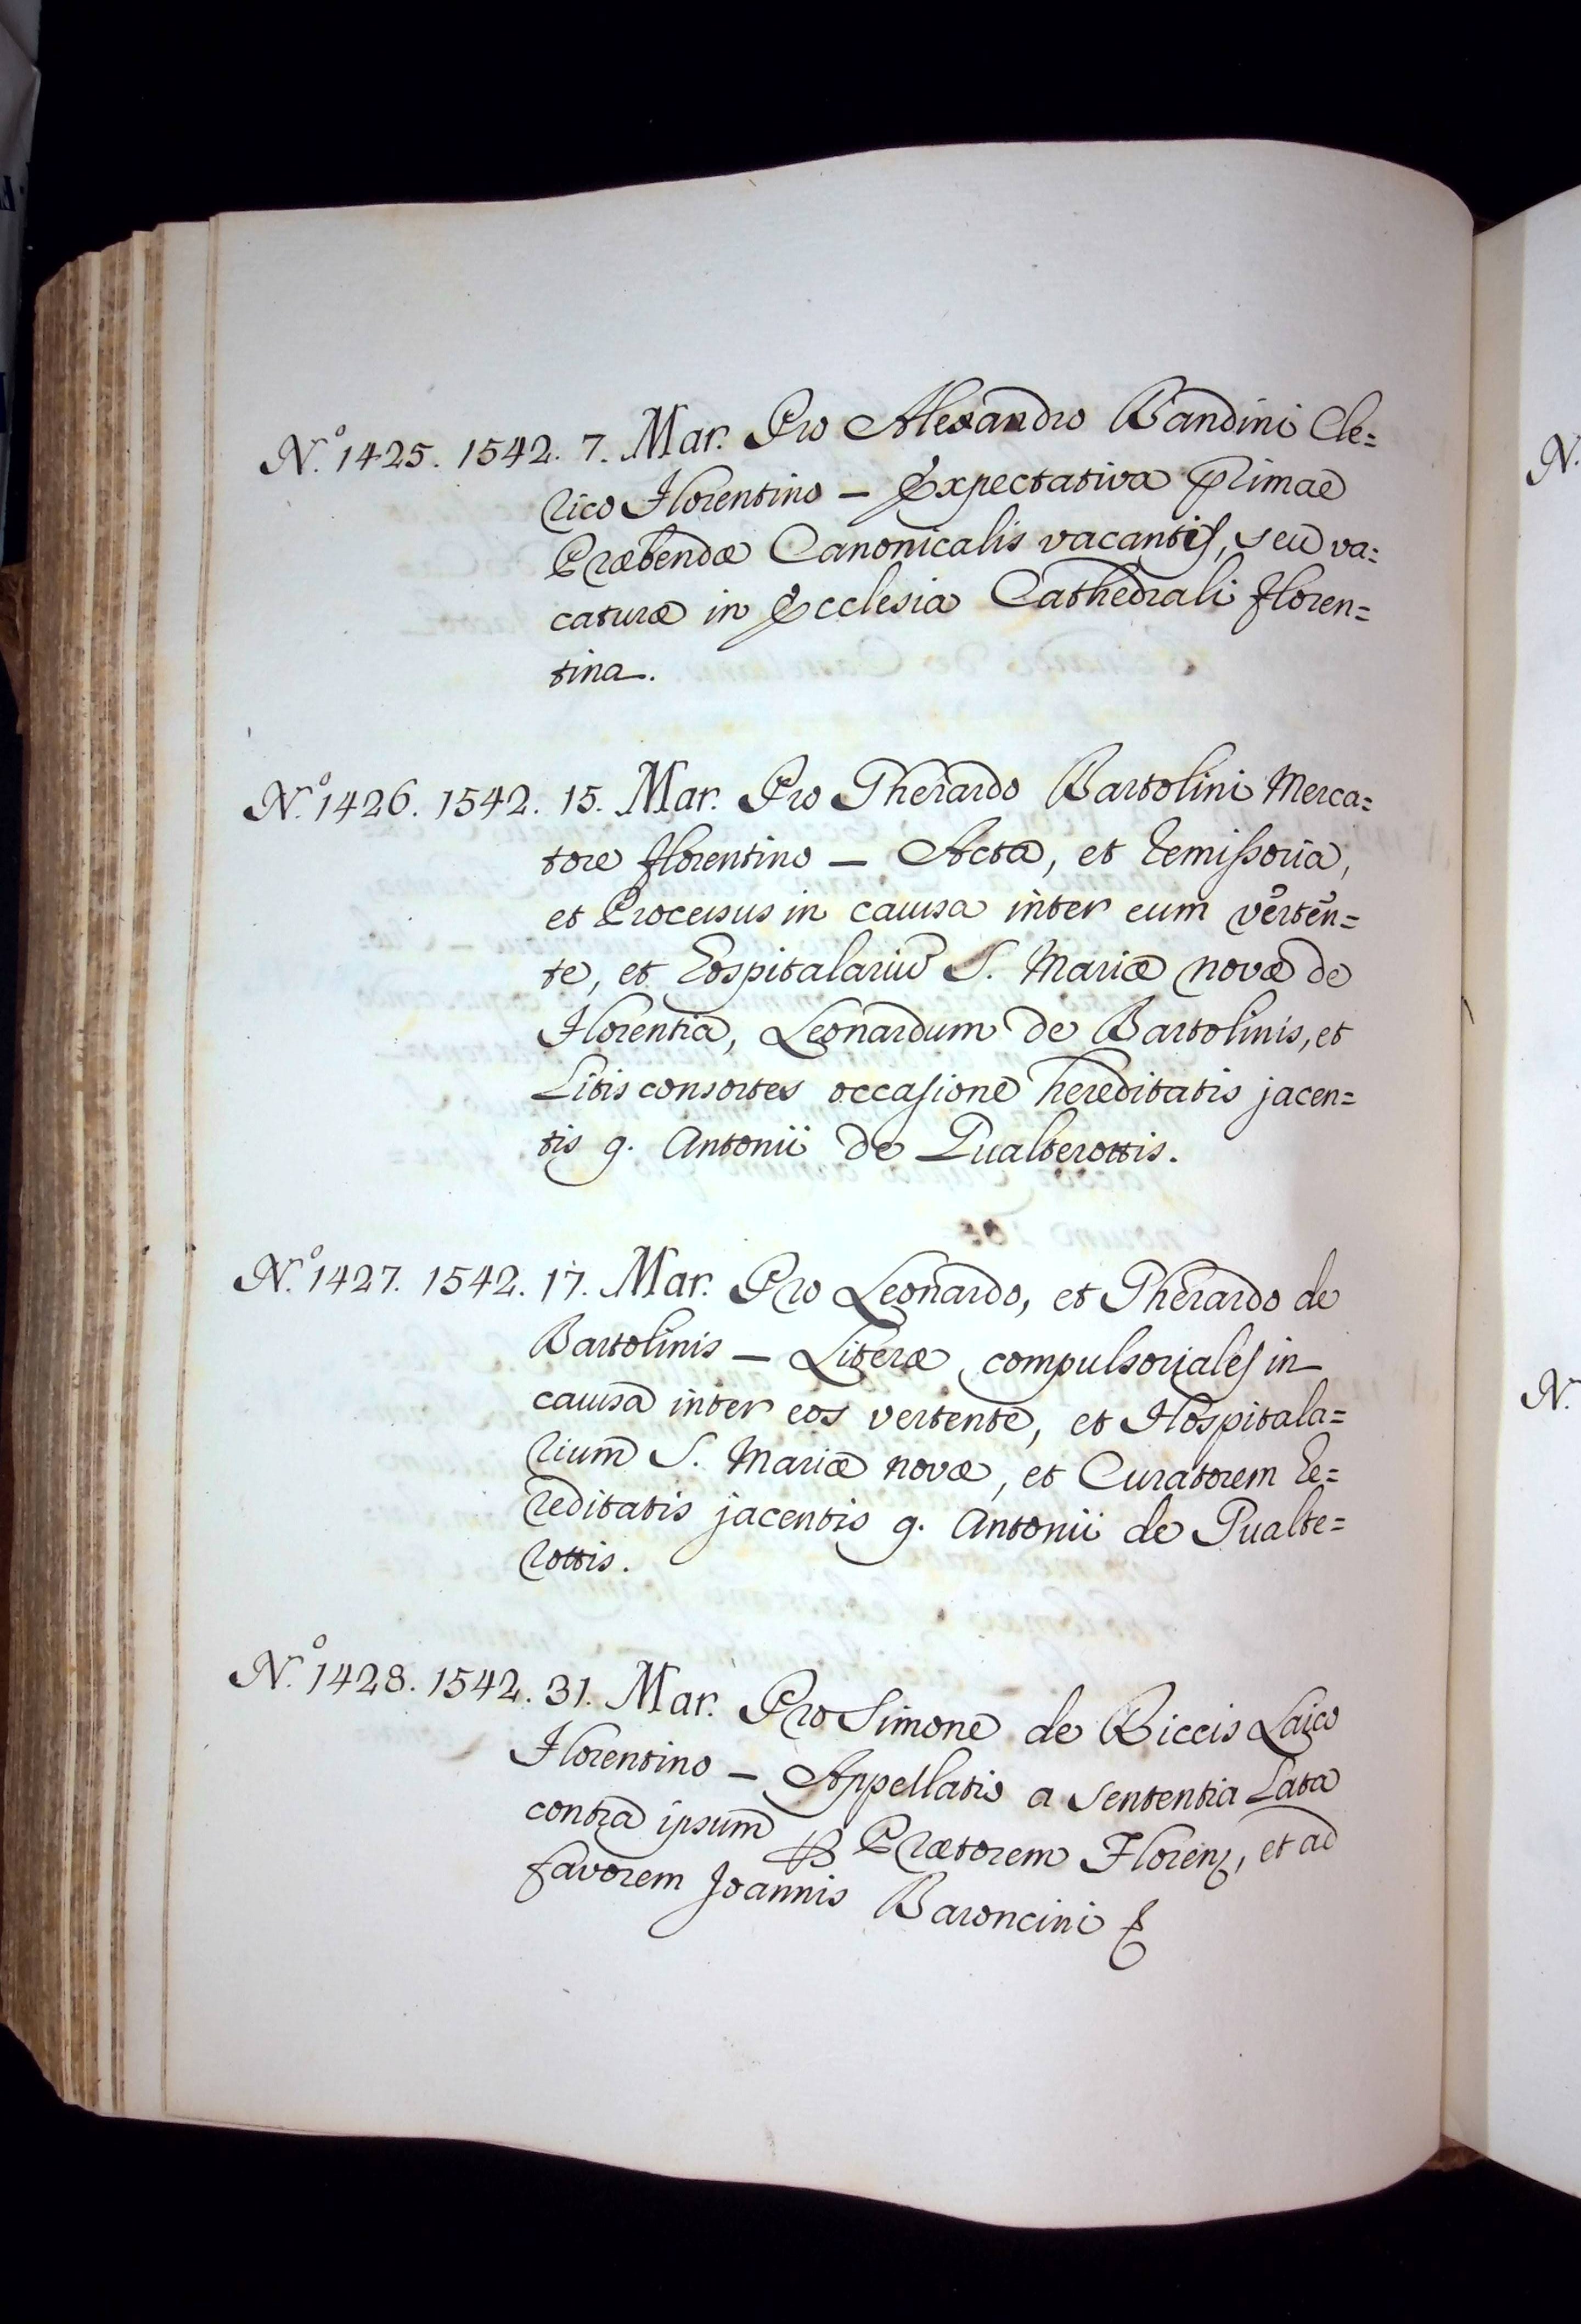 N.º 1425. 1542. 7. Mar. Pro Alexandro Bandini Cle=
rico Florentino – Expectativa primae
Præbendæ Canonicalis vacantis, seu va=
caturæ in Ecclesia Cathedrali floren=
tina.
N.º 1426. 1542. 15. Mar. Pro Gherardo Bartolini Merca=
tore florentino – Acta, et Remissoria,
et Processus in causa inter eum verten=
te, et Hospitalariũ S. Mariæ novæ de
Florentia, Leonardum de Bartolinis, et
Litis consortes occasione hereditatis jacen=
tis q. Antonii de Gualterottis.
N.º 1427. 1542. 17. Mar. Pro Leonardo, et Gherardo de
Bartolinis – Literæ compulsoriales in
causa inter eos vertente, et Hospitala=
rium S. Mariæ novæ, et Curatorem He=
reditatis jacentis q. Antonii de Gualte=
rottis.
N.º 1428. 1542. 31. Mar. Pro Simone de Riccis Laico
Florentino – Appellatio a sententia Lata
contra ipsum ꝑ Prætorem Floren, et ad
favorem Joannis Baroncini
N.
N.